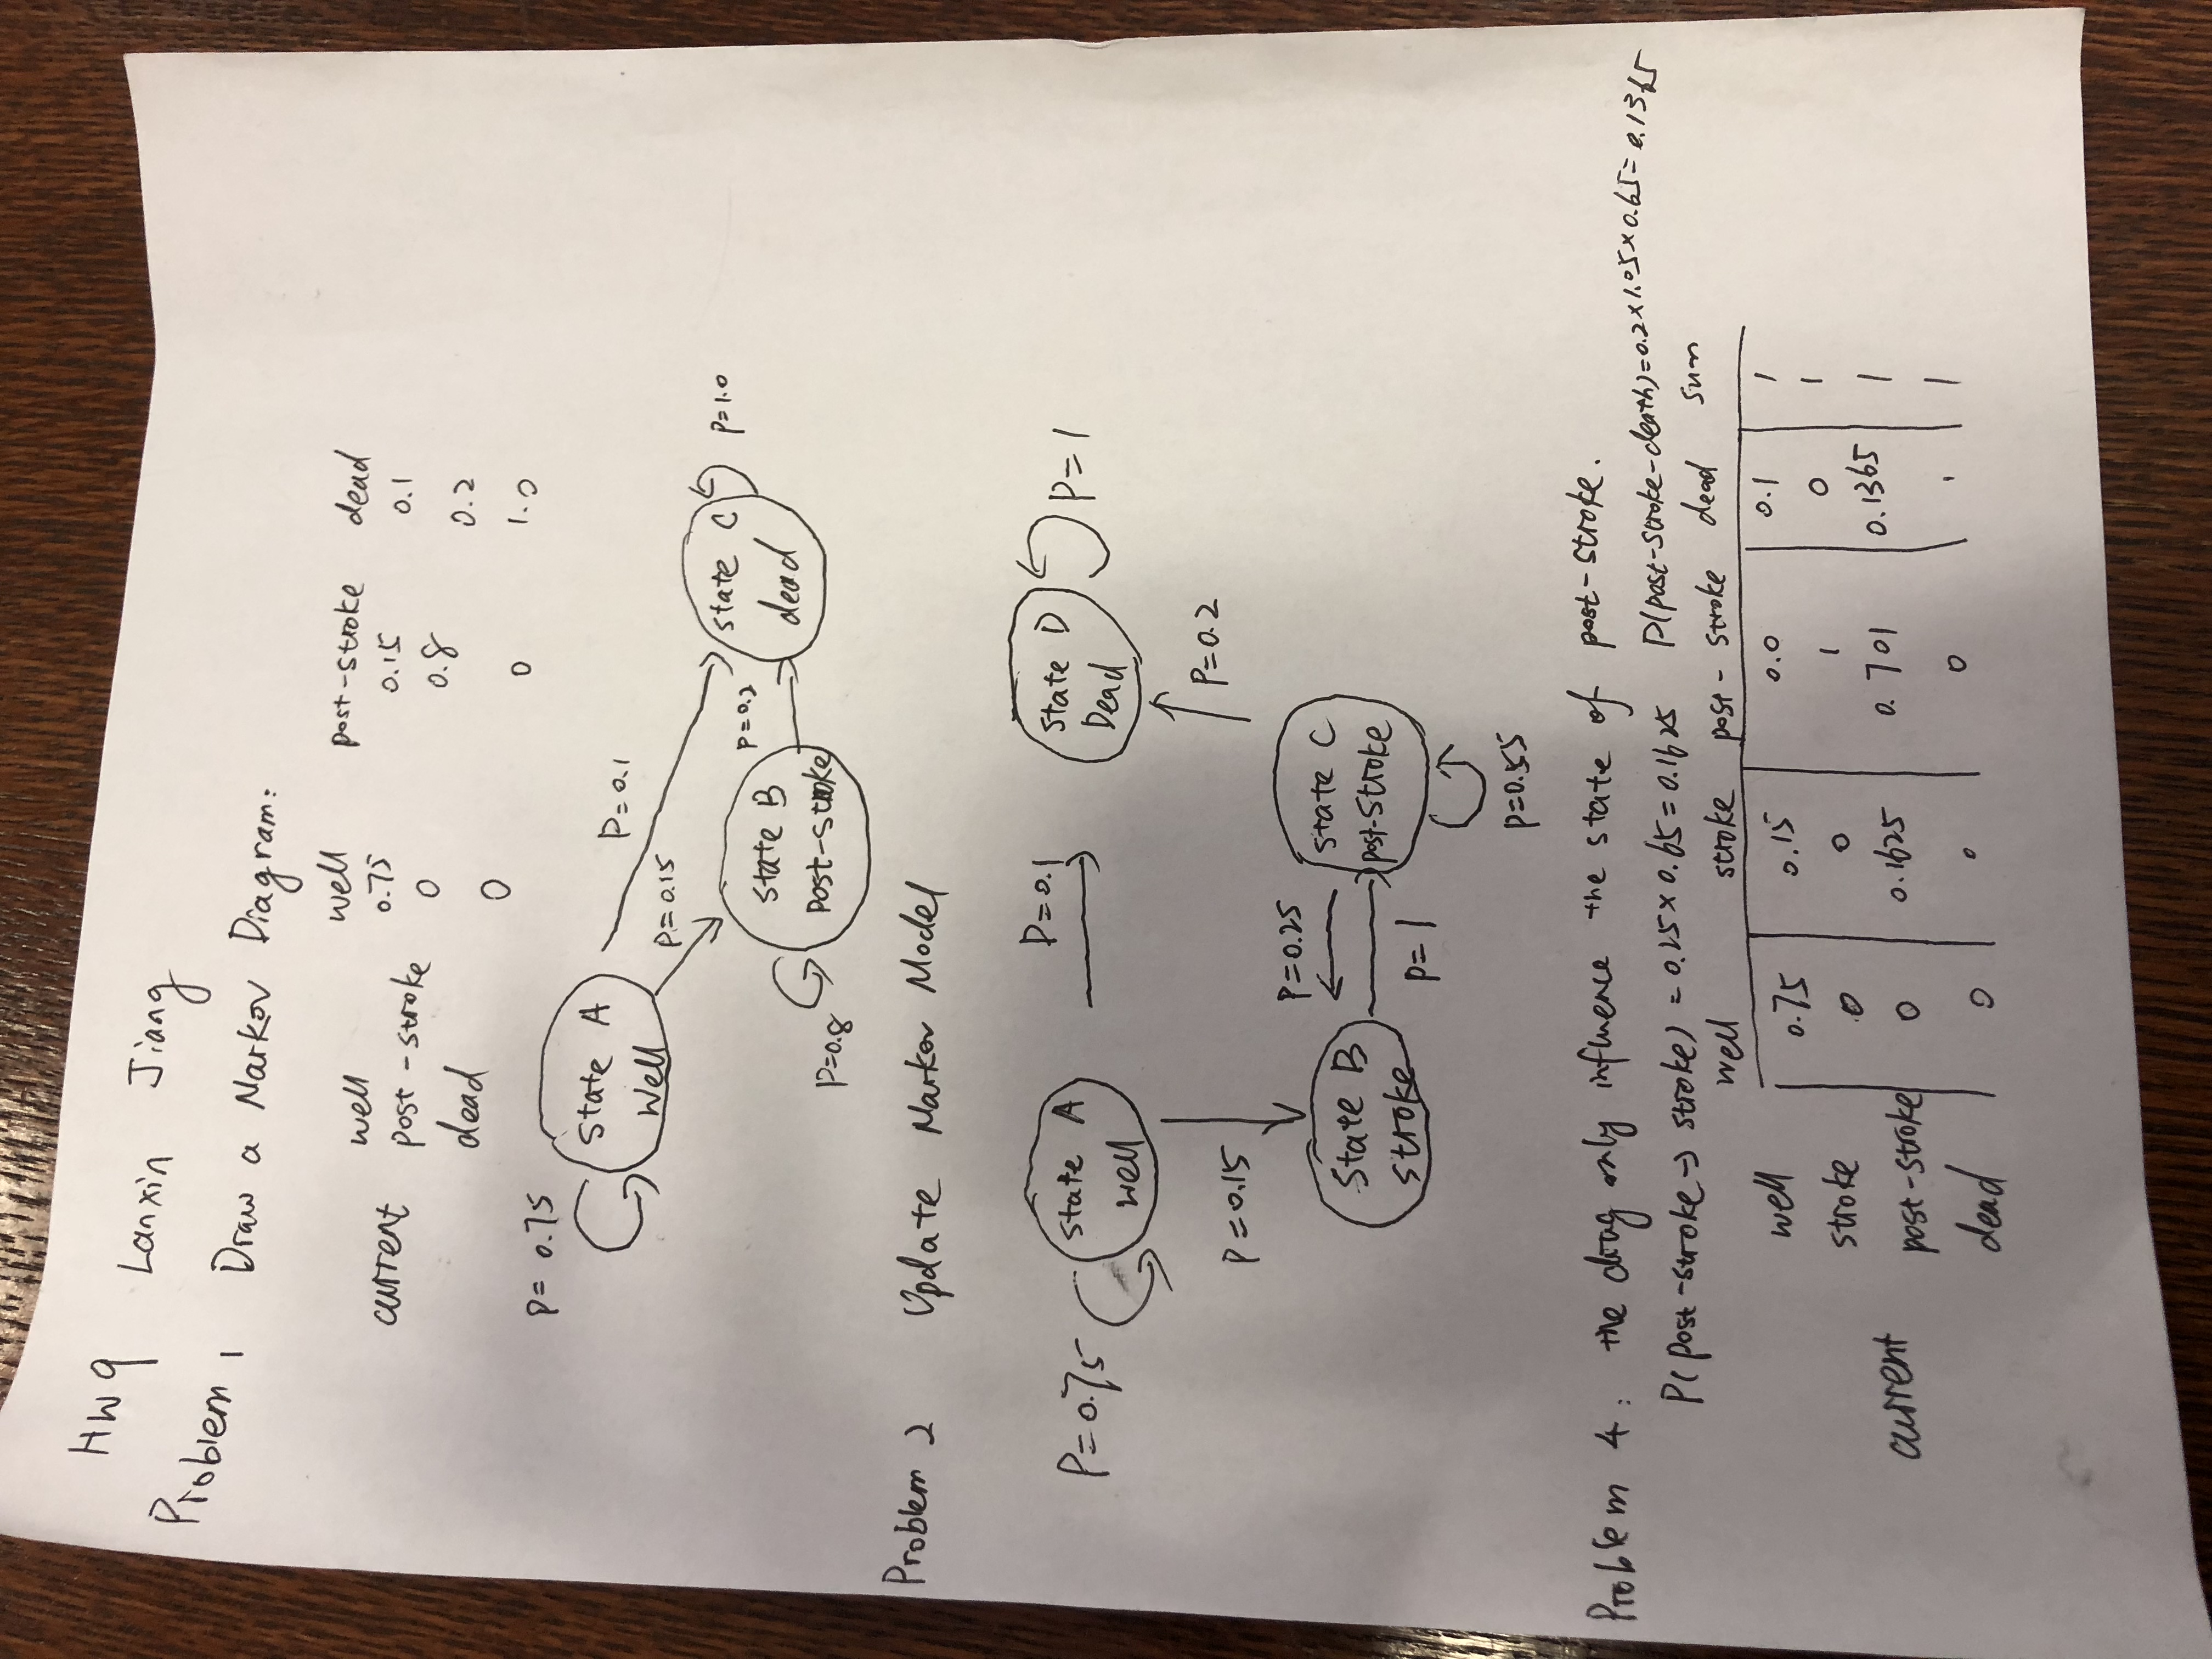 HW9 Lanxin Jiang
Problem 1 Draw a Narkov Diagram:
well post-stroke dead
current well 0.75 0.15 0.1
post-stroke 0 0.8 0.2
dead 0 0 1.0
P= 0.75
state A
Well
P=0.1
P=0.15
state C
dead
P=1.0
P=0.2
state B
Post-stroke
P=0.8
Problem 2 Update Narkov Model
P=0.75
state A
well
P=0.1
state D
Dead
P=1
P=0.15
P=0.2
P=0.25
state B
stroke
state C
post-stroke
P=1
P=0.55
Problem 4: the drug only influence the state of post-stroke.
P(post-stroke→stroke) = 0.25×0.65=0.1625 P(post-stroke-death)=0.2×1.05×0.65=0.1365
well stroke post-stroke dead sum
well 0.75 0.15 0.0 0.1 1
stroke 0 0 1 0 1
current post-stroke 0 0.1625 0.701 0.1365 1
dead 0 0 0 1 1